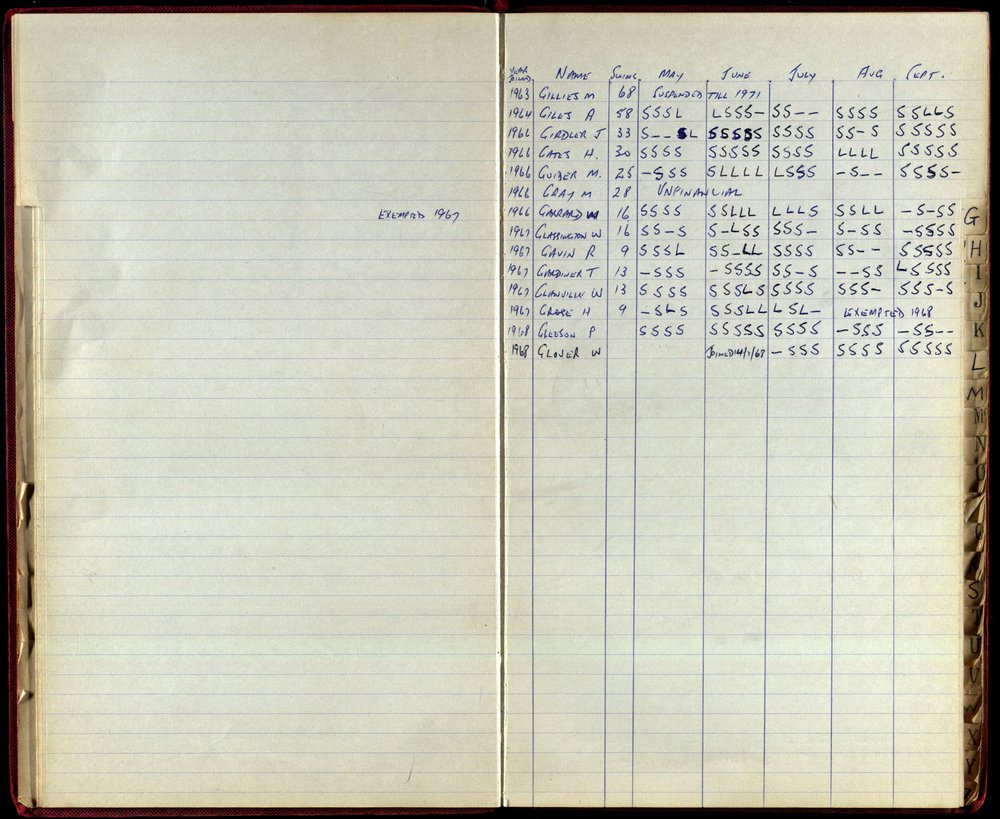 YEAR JOINED NAME SWIMS MAY JUNE JULY AUG SEPT.
1963 GILLIES M 68 SUSPENDED TILL 1971
1964 GILES A 58 SSSL LSSS- SS-- SSSS SSLLS
1966 GIRDLER J 33 S--SL SSSSS SSSS SS-S SSSSS
1966 GATES H. 30 SSSS SSSSS SSSS LLLL SSSSS
1966 GUIDER M. 25 -SSS SLLLL LSSS -S-- SSSS-
1966 GRAY M 28 UNFINANCIAL
EXEMPTED 1967 1966 GARRARD W 16 SSSS SSLLL LLLS SSLL -S-SS
1967 GLASSINGTON W 16 SS-S S-LSS SSS- S-SS -SSSS
1967 GAVIN R 9 SSSL SS-LL SSSS SS-- SSSSS
1967 GARDINER T 13 -SSS -SSSS SS-S --SS LSSSS
1967 GLANVILLE W 13 SSSS SSSLS SSSS SSS- SSS-S
1967 H 9 -SLS SSSLL LSL- EXEMPTED 1968
1968 GLEESON P SSSS SSSSS SSSS -SSS -SS--
1968 GLOVER W JOINED 14/7/68 -SSS SSSS SSSSS
G
H
I
J
K
L
M
M
N
O
S
T
U
V
X
Y